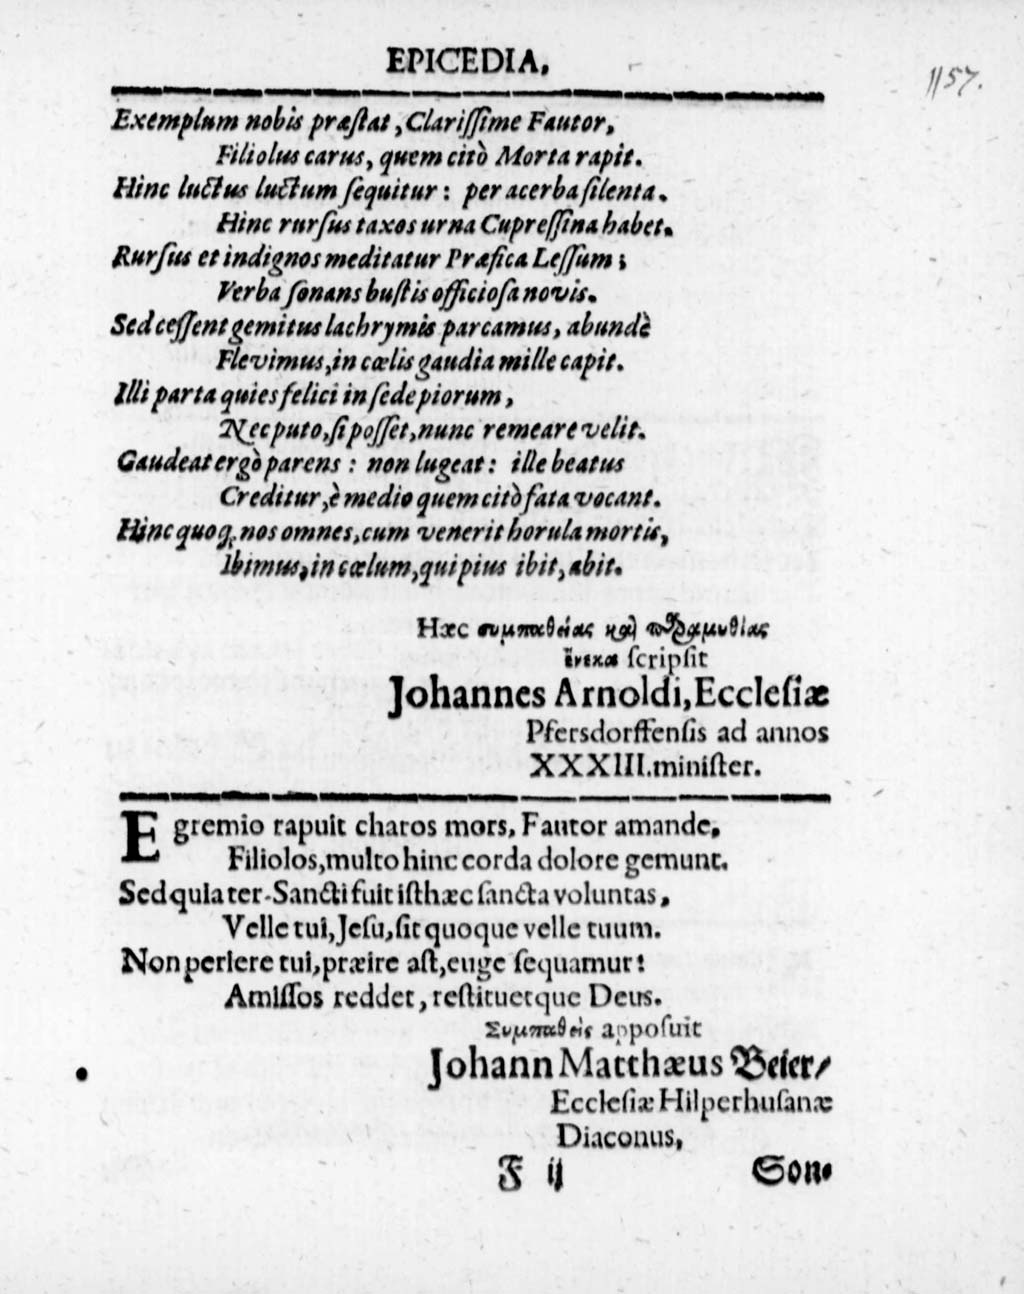 EPICEDIA.
1157.
Exemplum nobis præſtat, Clariſſime Fautor,
Filiolus carus, quem citò Morta rapit.
Hinc luctus luctum ſequitur: per acerba ſilenta.
Hinc rurſus taxos urna Cupreſſina habet.
Rurſus et indignos meditatur Præfica Leſſum;
Verba ſonans buſtis officioſa novis.
Sed ceſſent gemitus lachrymis parcamus, abundè
Flevimus, in cœlis gaudia mille capit.
Illi parta quies felici in ſede piorum,
Nec puto, ſi poſſet, nunc remeare velit.
Gaudeat ergò parens: non lugeat: ille beatus
Creditur, è medio quem citò fata vocant.
Hinc quoq; nos omnes, cum venerit horula mortis,
Ibimus, in cœlum, qui pius ibit, abit.
Hæc συμπαθείας καὶ παραμυθίας
ἕνεκα ſcripſit
Johannes Arnoldi, Eccleſiæ
Pfersdorffenſis ad annos
XXXIII. miniſter.
E gremio rapuit charos mors, Fautor amande,
Filiolos, multo hinc corda dolore gemunt.
Sed quia ter-Sancti fuit iſthæc ſancta voluntas,
Velle tui, Jeſu, ſit quoque velle tuum.
Non periere tui, præire aſt, euge ſequamur:
Amiſſos reddet, reſtituetque Deus.
Συμπαθεὶς appoſuit
Johann Matthæus Beier/
Eccleſiæ Hilperhuſanæ
Diaconus,
F ij Son-